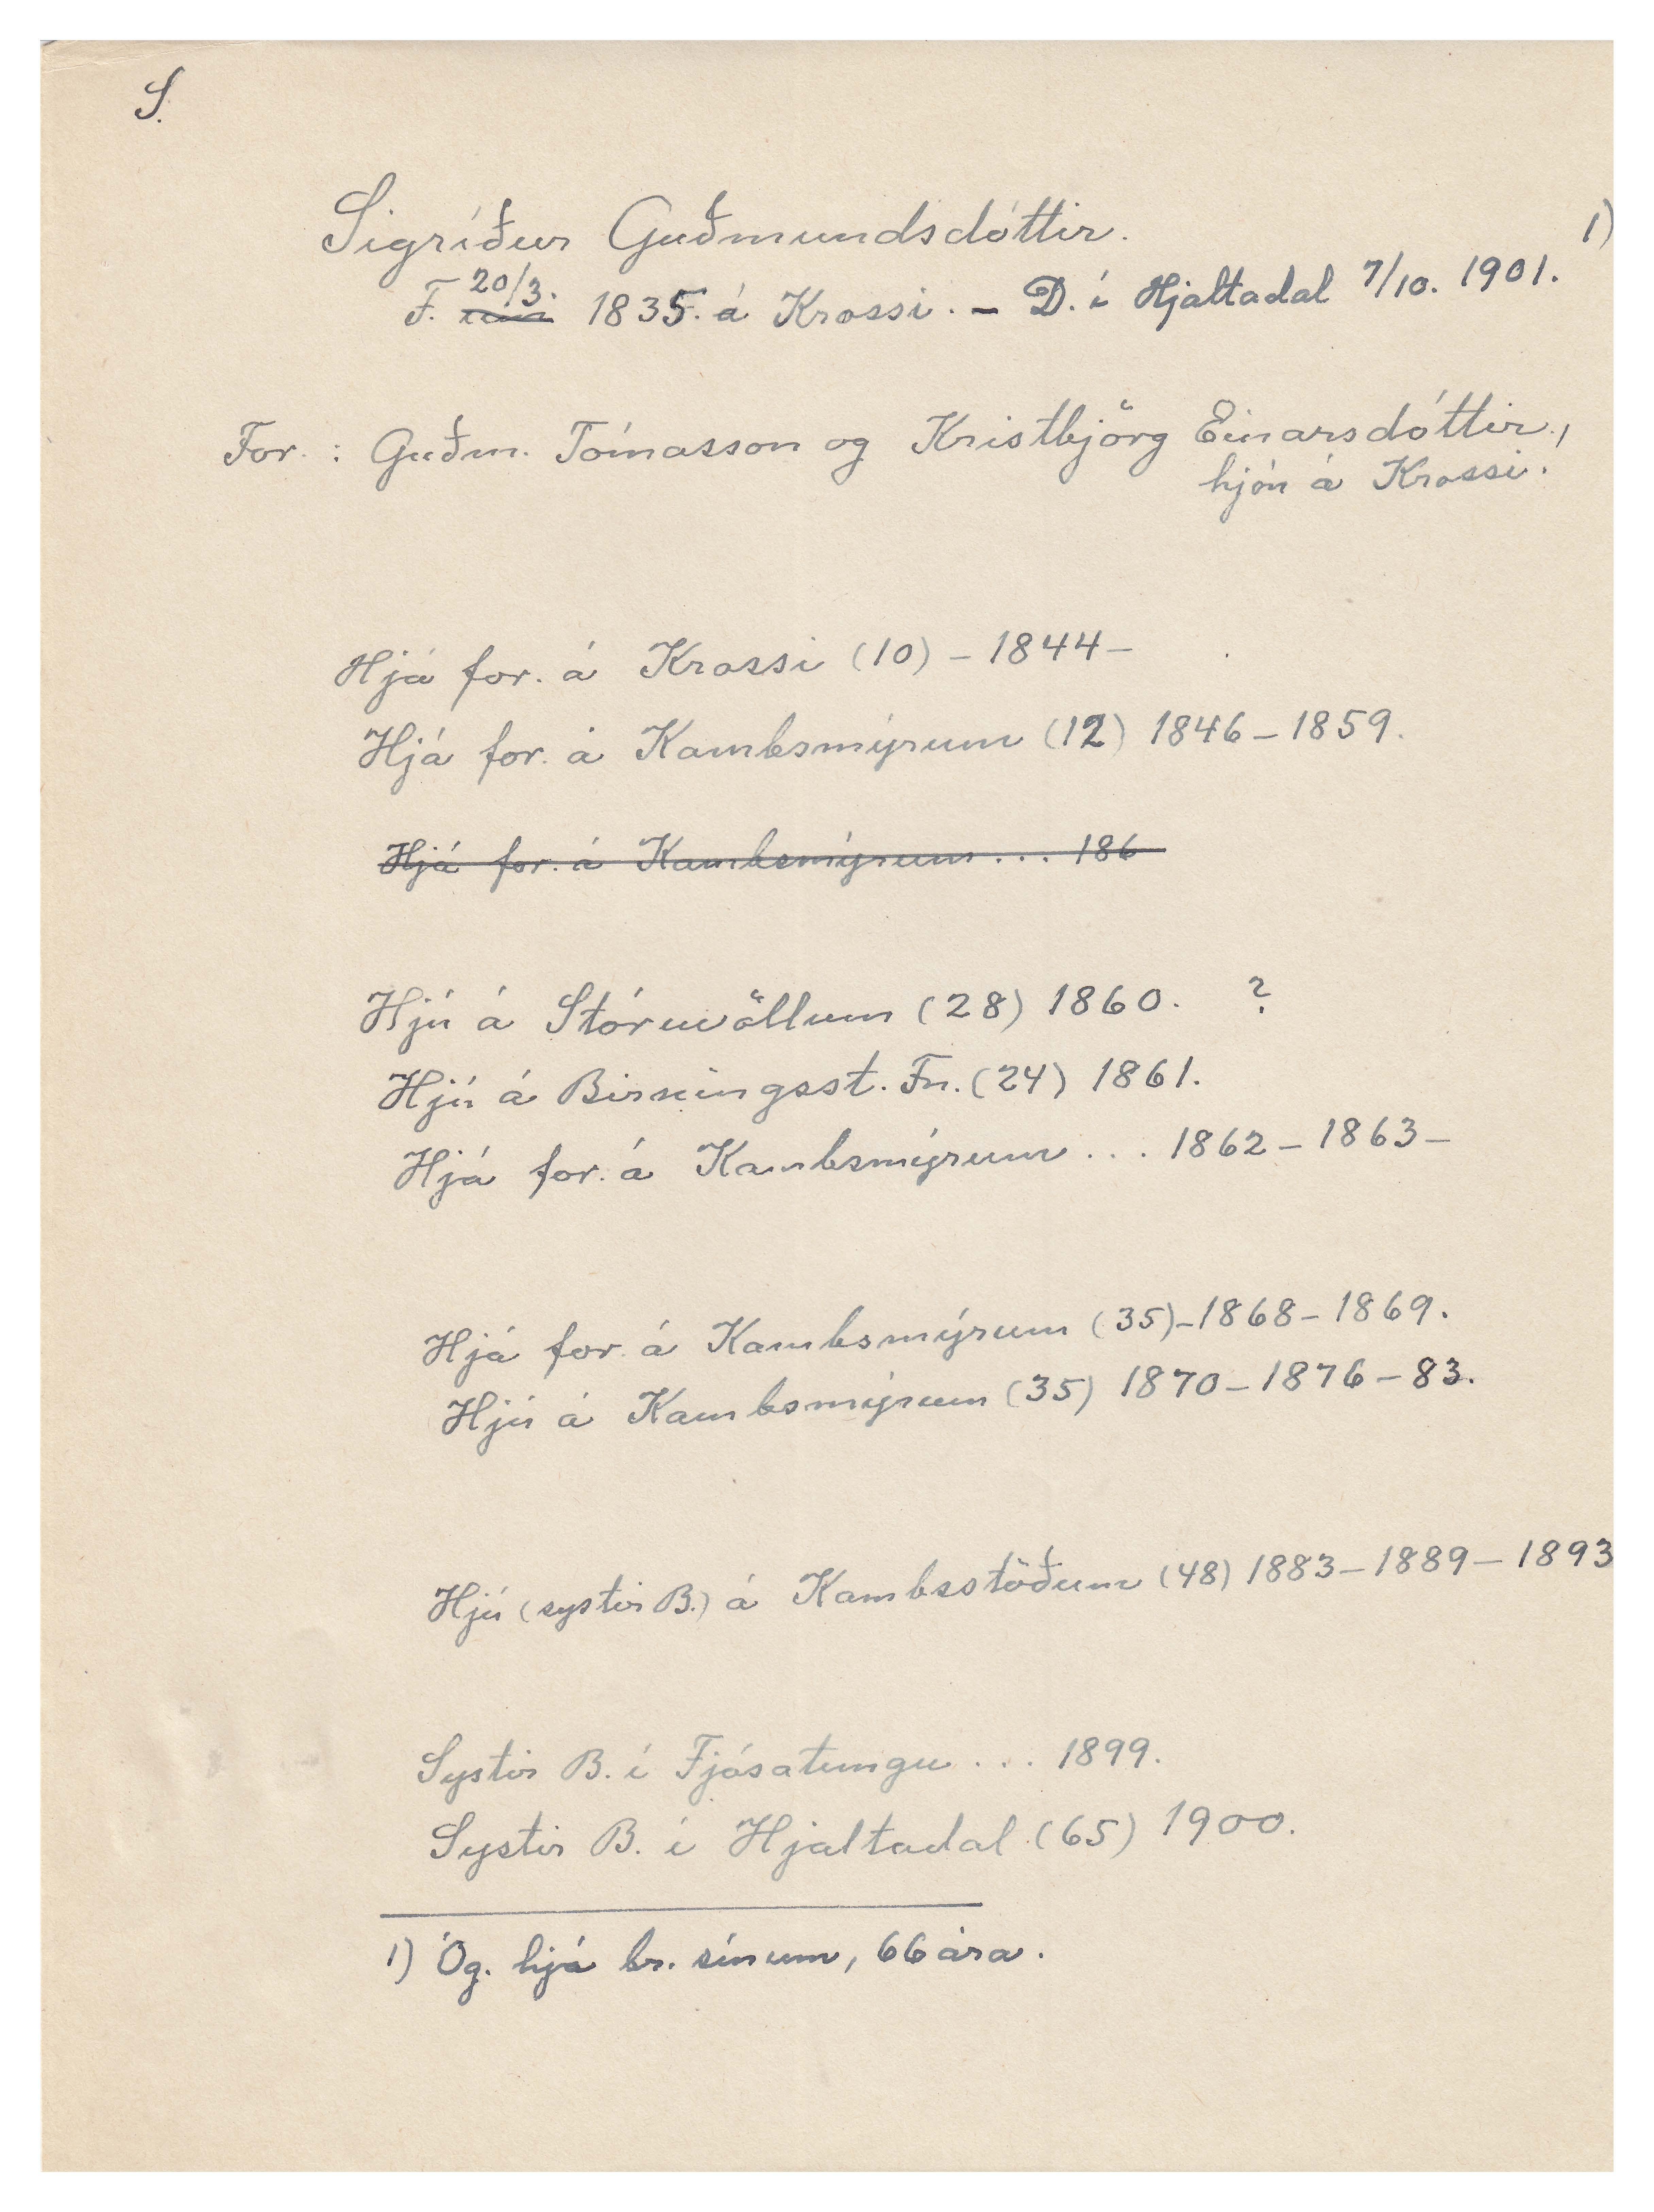 S.
Sigríður Guðmundsdóttir.
F. 20/3. 1835. á Krossi. – D. í Hjaltadal 7/10. 1901. 1)
For. : Guðm. Tómasson og Kristbjörg Einarsdóttir,
hjón á Krossi.
Hjá for. á Krossi (10) – 1844 –
Hjá for. á Kambsmýrum (12) 1846 – 1859.
Hjá for. á Kambsmýrum . . . 186
Hjú á Stóruvöllum (28) 1860. ?
Hjú á Birningsst. Fn. (24) 1861.
Hjá for. á Kambsmýrum . . . 1862 – 1863 –
Hjá for. á Kambsmýrum (35) – 1868 – 1869.
Hjú á Kambsmýrum (35) 1870 – 1876 – 83.
Hjú (systir B.) á Kambsstöðum (48) 1883 – 1889 – 1893
Systir B. í Fjósatungu . . . 1899.
Systir B. í Hjaltadal (65) 1900.
1) Óg. hjá br. sínum, 66 ára.